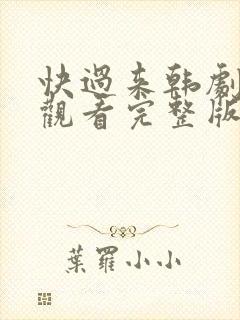 快過来韩劇
觀看完整版
葉羅小小